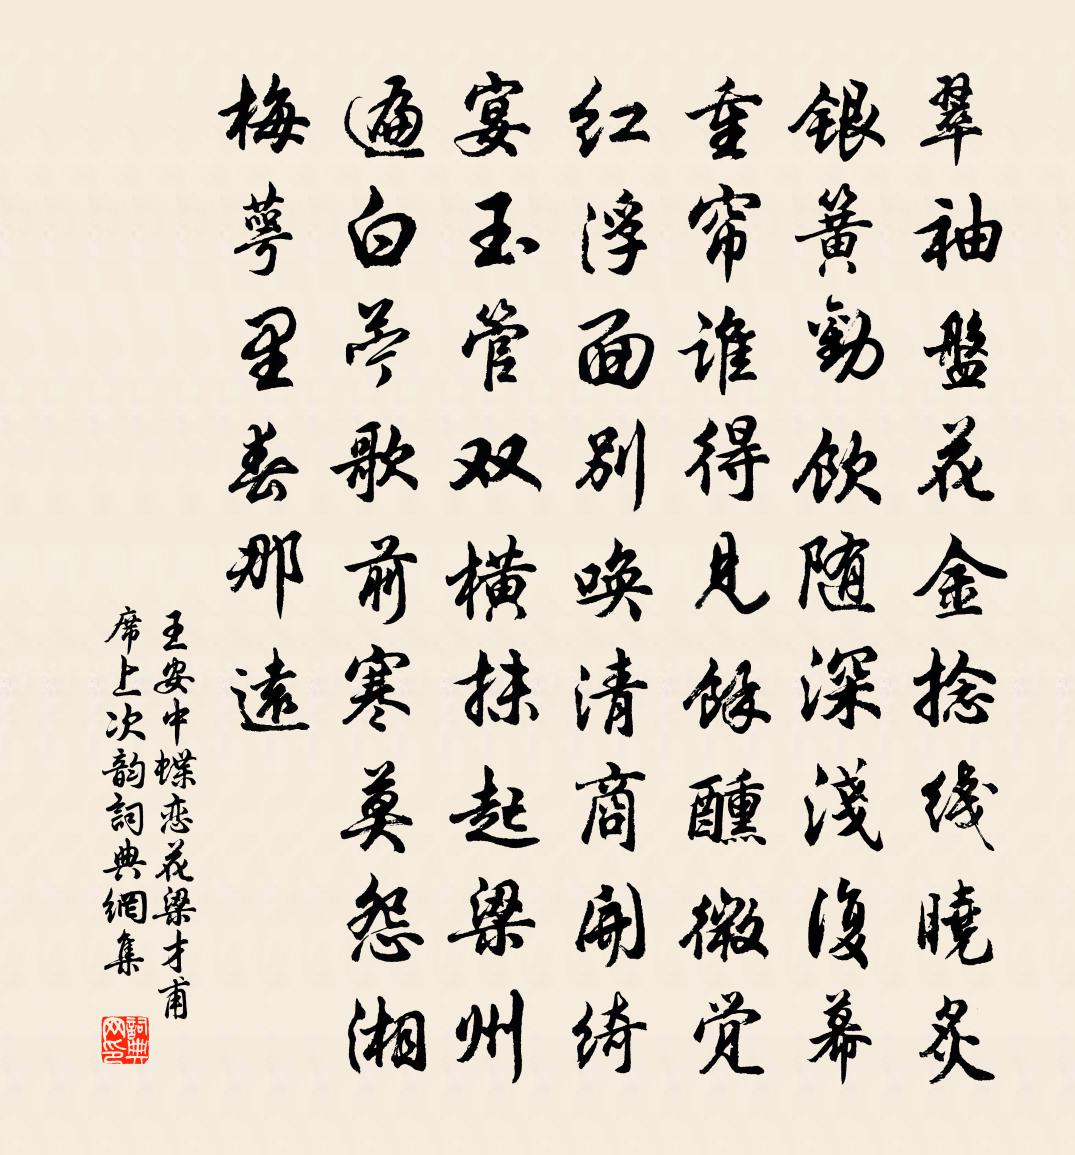 翠袖盤花金捻线曉炙
銀簧勸飲随深淺復幕
重帘谁得見餘醺微觉
红浮面別唤清商開綺
宴玉管双横抹起梁州
遍白苧歌前寒莫怨湘
梅萼里春那遠
王安中蝶恋花梁才甫
席上次韵詞典網集
詞典网印